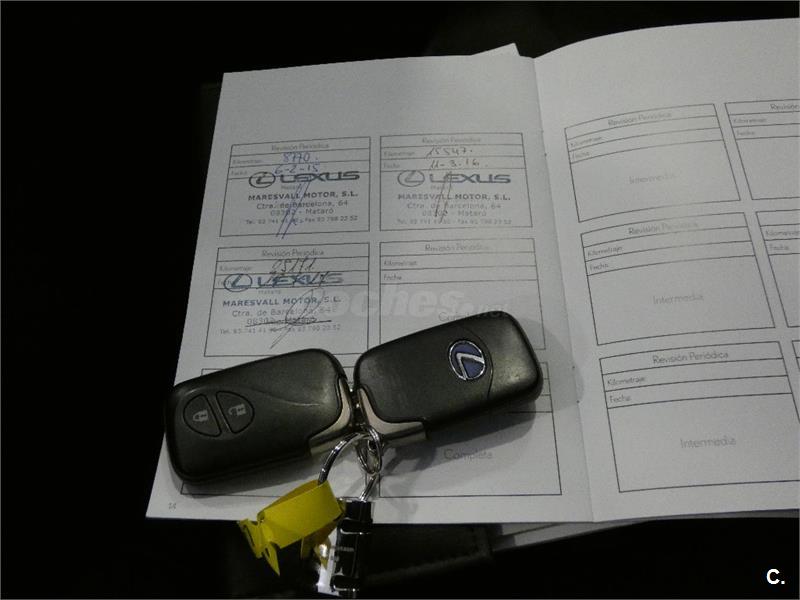 Revisión Periódica
Kilometraje: 8770.
Fecha: 6-2-15
LEXUS
Mataró
MARESVALL MOTOR, S.L.
Ctra. de Barcelona, 64
08302 - Mataró
Revisión Periódica
Kilometraje: 15547.
Fecha: 11-3-16.
LEXUS
Mataró
MARESVALL MOTOR, S.L.
Ctra. de Barcelona, 64
08302 - Mataró
Tel. 93 741 41 90 - Fax 93 798 23 52
Revisión Periódica
Kilometraje:
LEXUS
Mataró
MARESVALL MOTOR, S.L.
Ctra. de Barcelona, 64
08302 - Mataró
Revisión Periódica
Kilometraje:
Fecha:
coches.net
Completa
14
Revisión Periódica
Kilometraje:
Fecha:
Intermedia
Revisión
Kilometraje:
Fecha:
Revisión Periódica
Kilometraje:
Fecha:
Intermedia
Kilometraje:
Fecha:
Revisión Periódica
Kilometraje:
Fecha:
Intermedia
C.